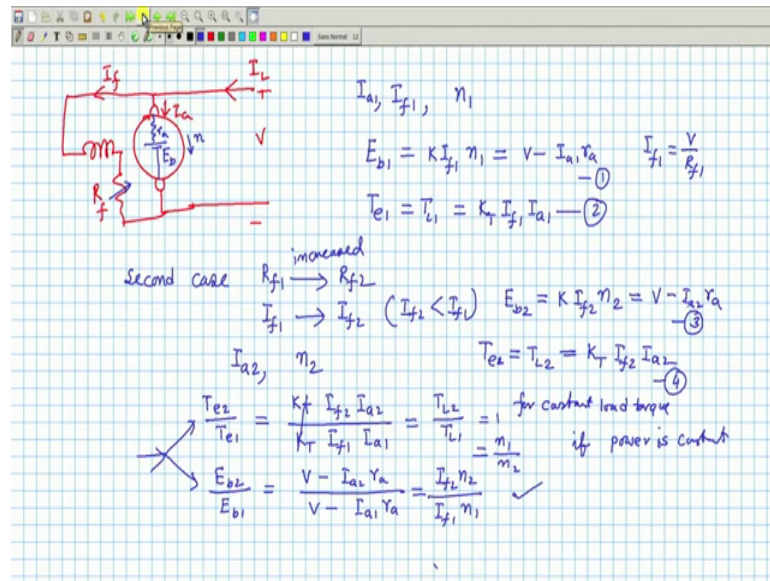 Previous Page
Sans Normal 12
I_f
I_L
+
I_a
r_a
E_b
n
V
R_f
−
I_a1, I_f1, n_1
E_b1 = K I_f1 n_1 = V − I_a1 r_a —①
I_f1 = V/R_f1
T_e1 = T_L1 = K_T I_f1 I_a1 —②
increased
Second case R_f1 → R_f2
I_f1 → I_f2 (I_f2 < I_f1)
E_b2 = K I_f2 n_2 = V − I_a2 r_a —③
I_a2, n_2
T_e2 = T_L2 = K_T I_f2 I_a2 —④
T_e2/T_e1 = K_T I_f2 I_a2 / K_T I_f1 I_a1 = T_L2/T_L1 = 1 for constant load torque
= n_1/n_2 if power is constant
E_b2/E_b1 = (V − I_a2 r_a)/(V − I_a1 r_a) = I_f2 n_2 / I_f1 n_1 ✓